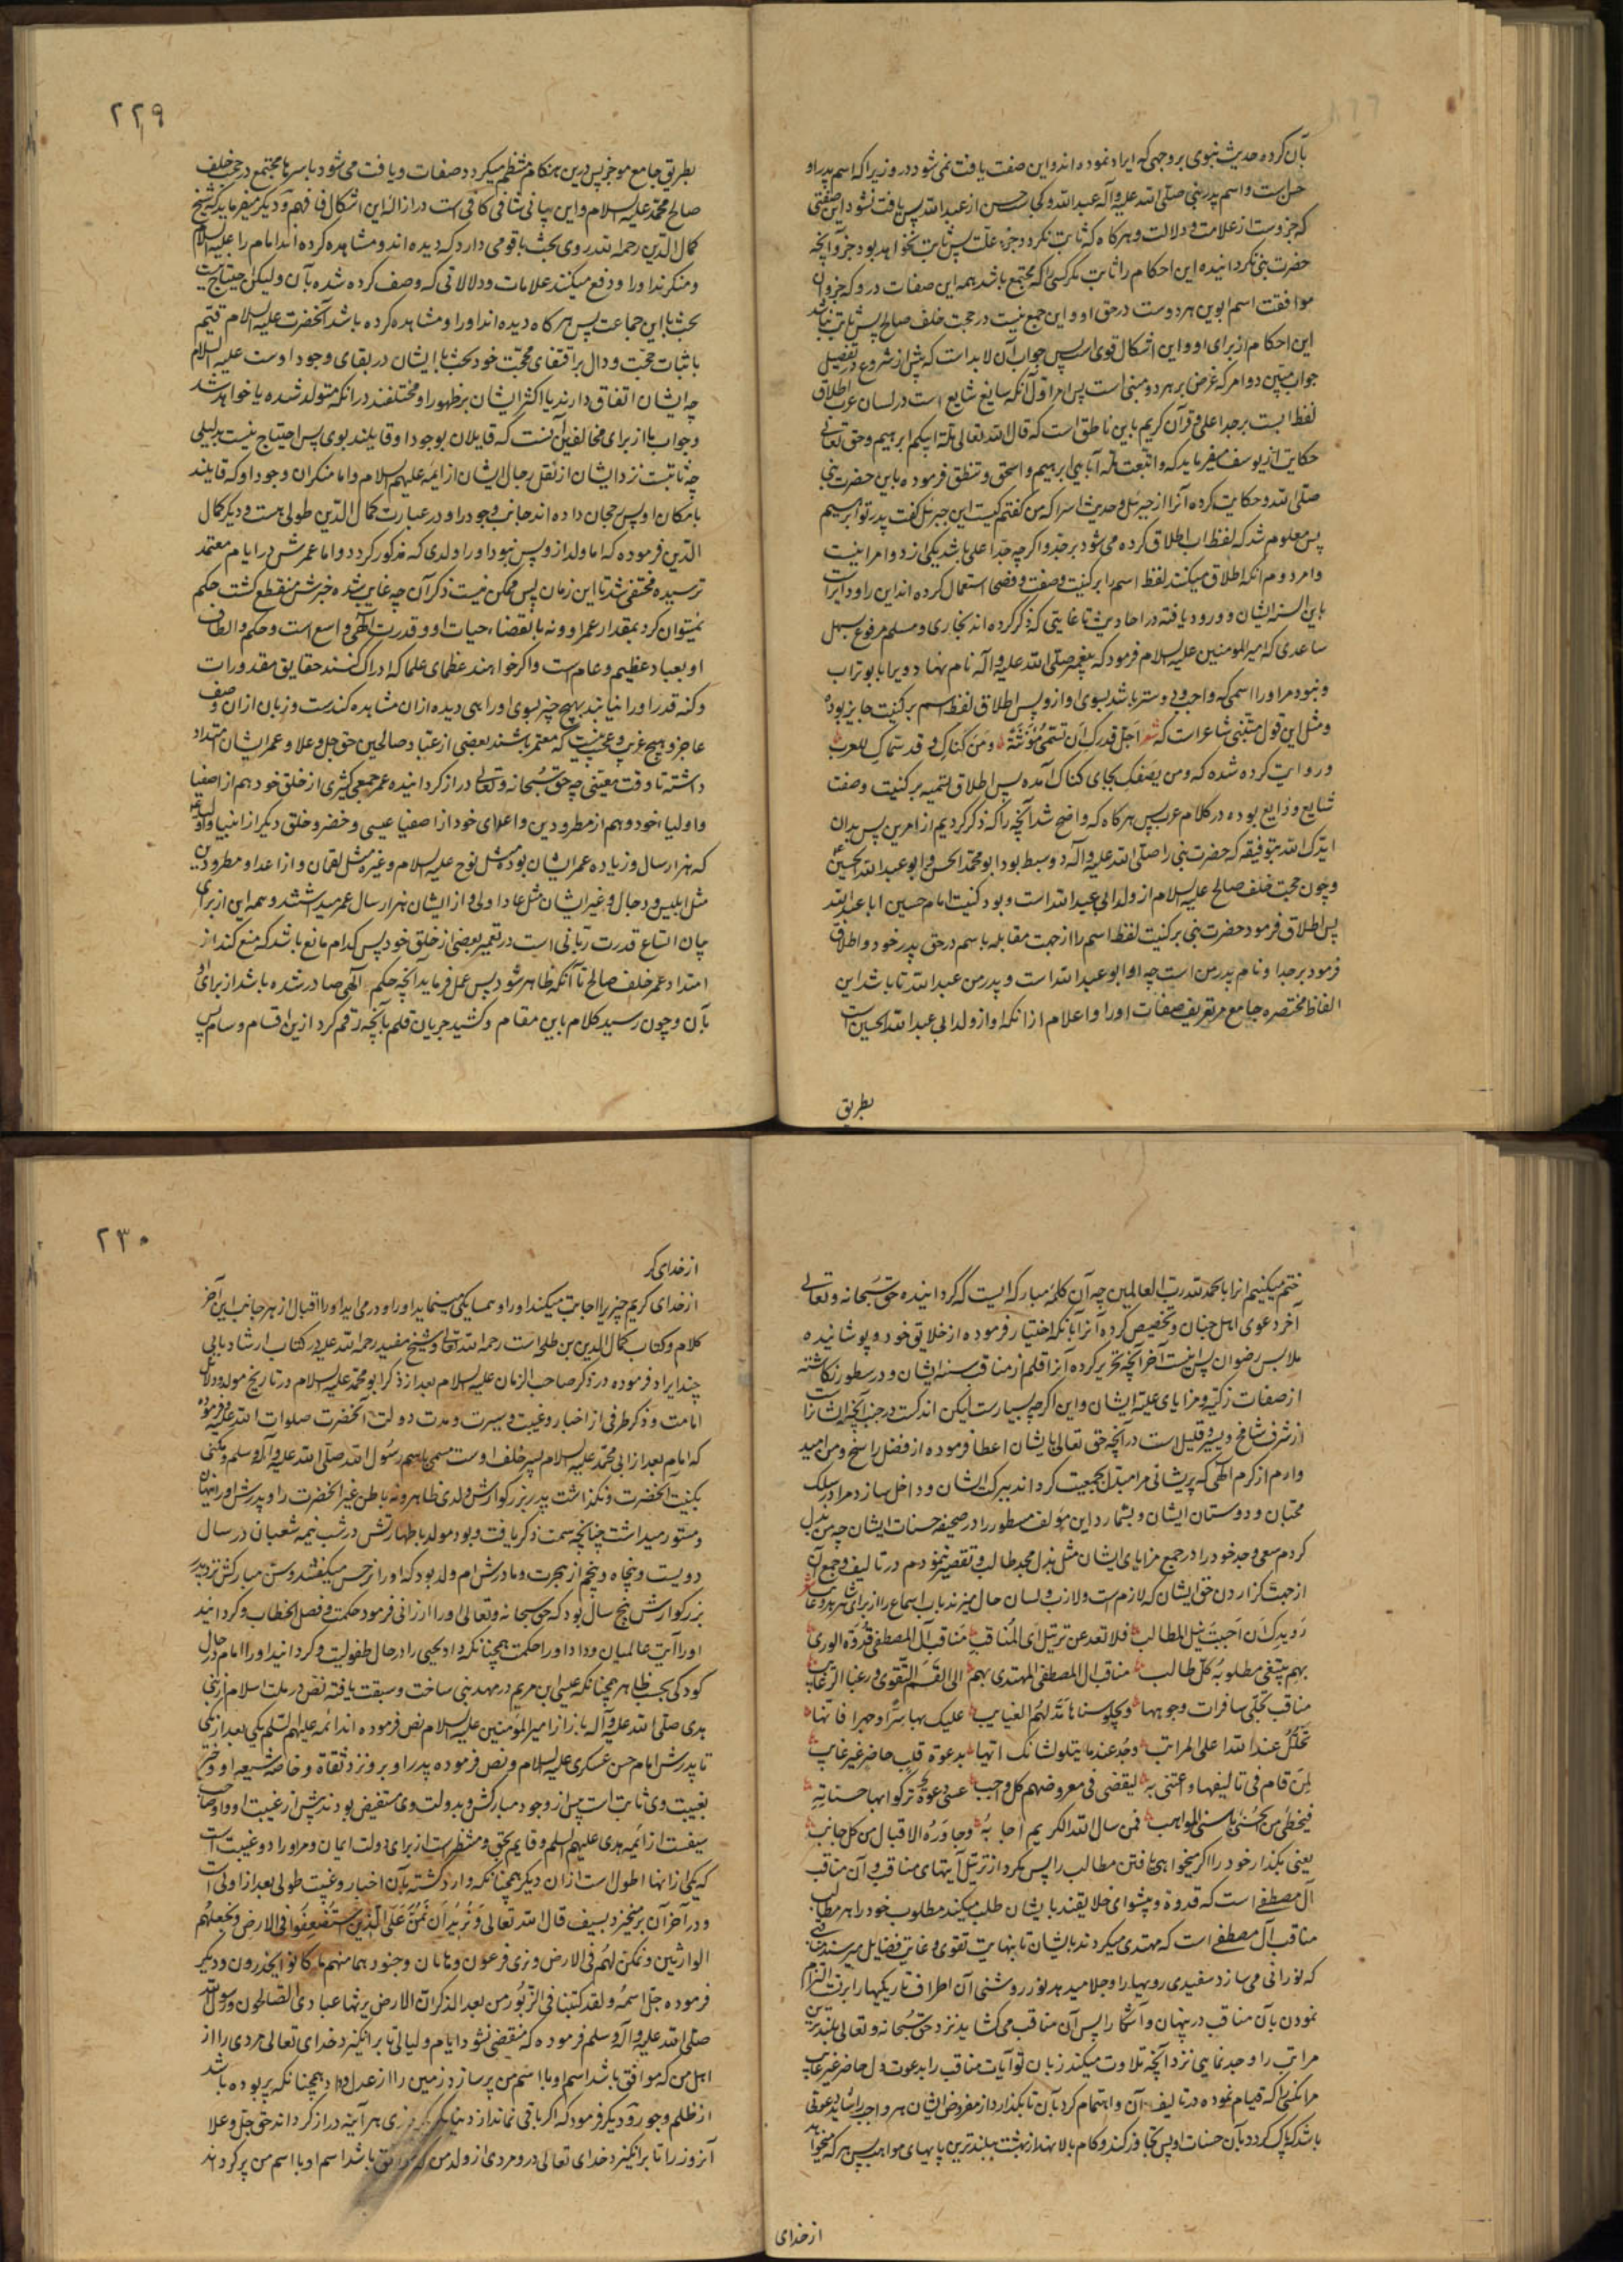 بآن کرده حدیث نبوی بر وجهی که ایراد نموده اند و این صفت یافت نمی شود در و زیرا که اسم پدر او
حسن است و اسم پدر نبی صلّی الله علیه و آله عبدالله و کجا حسن از عبدالله پس یافت نشود این صفتی
که جزوست از علامت و دلالت و هر کاه که ثابت نکردد جزء علّت پس ثابت نخواهد بود جزو آنچه
حضرت نبی نکردانیده این احکام را ثابت مکر کسی را که مجتمع باشد همه این صفات در و که جزو آن
موافقت اسم ابوین هر دوست در حق او و این جمع نیست در حجت خلف صالح پس ثابت نباشد
این احکام از برای او و این اشکال قوی است پس جواب آن لابد است که پیش از شروع در تفصیل
جواب مبیّن دو امر که غرض بر هر دو مبنی است پس امر اوّل آنکه سایغ شایع است در لسان عرب اطلاق
لفظ اب بر جد اعلی و قرآن کریم باین ناطق است که قال الله تعالی ملّة ابیکم ابرهیم و حق تعالی
حکایت از یوسف میفرماید که واتبعت ملّة آبایی ابرهیم و اسحق و تنطق فرموده باین حضرت نبی
صلّی الله و حکایت کرده آنرا از جبرئل و حدیث اسرا که من کفتم کیست این جبرئل کفت پدر تو ابرهیم
پس معلوم شد که لفظ اب اطلاق کرده می شود بر جدّ و اکرچه جدّ اعلی باشد یکی از دو امر اینست
و امر دوم آنکه اطلاق میکنند لفظ اسم را بر کنیت و صفت و فصحا استعمال کرده اند این را و دایر است
باین السنه ایشان و ورود یافته در احادیث تا غایتی که ذکر کرده اند بخاری و مسلم مرفوع بسهل
ساعدی که میر المومنین علیه السلام فرمود که پیغمبر صلّی الله علیه و آله نام نهاد ویرا بابوتراب
و نبود مر او را اسمی که واجبی دوستر باشد بسوی او از و پس اطلاق لفظ اسم بر کنیت جایز بوده
و مثل این قول متنبّی شاعر است که شعر اَجَلّ قدرک ان تسمّی مؤنثة و من کناک فقد سمّاک للعرب
و روایت کرده شده که و من یصفک بجای کناک آمده پس اطلاق تسمیه بر کنیت و صفت
شایع و ذایع بوده در کلام عرب پس هر کاه که واضح شد آنچه را که ذکر کردیم از امرین پس بدان
ایّدک الله بتوفیقه که حضرت نبی را صلّی الله علیه و آله دو سبط بود ابو محمد الحسن و ابوعبدالله الحسین
و چون حجت خلف صالح علیه السلام از ولد ابی عبدالله است و بود کنیت امام حسین اباعبدالله
پس اطلاق فرمود حضرت نبی بر کنیت لفظ اسم را از جهت مقابله باسم در حق پدر خود و اطلاق
فرمود بر جد او نام پدر من است چه او ابوعبدالله است و پدر من عبدالله تا باشد این
الفاظ مختصره جامع مر تعریف صفات او را و اعلام از آنکه او از ولد ابی عبدالله الحسین است
بطریق
٢٢٩
بطریق جامع موجز پس درین هنکام منتظم میکردد صفات و یافت می شود باسرها مجتمع در حجت خلف
صالح محمّد علیه السلام و این بیانی شافی کافی است در ازاله این اشکال فافهم و دیکر میفرماید که شیخ
کمال الدّین رحمه الله روی بحث با قومی دارد که دیده اند و مشاهده کرده اند امام را علیه السلام
و منکرند او را و دفع میکنند علامات و دلالاتی که وصف کرده شده بآن و لیکن احتیاج نیست
بحث با این جماعت پس هر کاه دیده اند او را و مشاهده کرده باشد آنحضرت علیه السلام قیّم
باثبات حجّت و دال بر اقتفای محجّت خود بحث با ایشان در بقای وجود اوست علیه السلام
چه ایشان اتفاق دارند یا اکثر ایشان بر ظهور او مختلفند در آنکه متولد شده یا خواهد شد
و جواب ما از برای مخالفین آنست که قایلان بوجود او قایلند بوی پس احتیاج نیست بدلیلی
چه ثابتست نزد ایشان از نقل رجال ایشان از ایمه علیهم السلام و اما منکران وجود او که قایلند
بامکان او پس رجحان داده اند جانب وجود را و در عبارت کمال الدّین طولی هست و دیکر کمال
الدّین فرموده که اما ولد از و پس نبود او را ولدی که مذکور کردد و اما عمرش در ایام معتمد
ترسیده مختفی شد تا این زمان پس ممکن نیست ذکر آن چه غایب شده خبرش منقطع کشت حکم
نمیتوان کرد بمقدار عمر او و نه بانقضاء حیات او و قدرت الهی واسع است و حکم و الطاف
او بعباد عظیم و عام است و اکر خواهند عظمای علما که ادراک کنند حقایق مقدورات
و کنه قدر او را نیابند بهیچ چیز بسوی او راهی دیده از آن مشاهده کندست و زبان از آن وصف
عاجز و هیچ غریب و عجیب نیست که معمّر باشند بعضی از عباد صالحین حق جل و علا و عمر ایشان امتداد
داشته تا وقت معیّنی چه حق سُبحانه و تعالی دراز کردانیده عمر جمعی کثیری از خلق خود هم از اصفیا
و اولیاء خود و هم از مطرودین و اعدای خود از اصفیا عیسی و خضر و خلق دیکر از انبیا و اولیا
که هزار سال و زیاده عمر ایشان بوده مثل نوح علیه السلام و غیره مثل لقمان و از اعدا و مطرودین
مثل ابلیس و دجال و غیر ایشان مثل عاد اولی و از ایشان هزار سال عمر میداشتند و همه این از برای
بیان اتساع قدرت ربّانی است در تعمیر بعضی از خلق خود پس کدام مانع باشد که منع کند از
امتداد عمر خلف صالح تا آنکه ظاهر شود پس عمل فرماید آنچه حکم الهی صادر شده باشد از برای او
بآن و چون رسید کلام باین مقام و کشید جریان قلم بآنچه رقم کرد ازین اقسام وسام پس
ختم میکنیم انرا بالحمد لله ربّ العالمین چه آن کلمه مبارکه ایست که کردانیده حق سُبحانه و تعالی
آخر دعوی اهل جنان و تخصیص کرده آنرا بآنکه اختیار فرموده از خلایق خود و پوشانیده
ملابس رضوان پس اینست آخر آنچه تحریر کرده آنرا قلم از مناقب سنیه ایشان و در سطور نکاشته
از صفات زکیّه و مزایای علیّه ایشان و این اکرچه بسیار است لیکن اندکست در جنب آنچه ایشانراست
از شرف شامخ و یسیر و قلیل است در آنچه حق تعالی بایشان اعطا فرموده از فضل راسخ و من امید
وارم از کرم الهی که پریشانی مرا مبدّل بجمعیت کرداند ببرکت ایشان و داخل سازد مرا در سلک
محبّان و دوستان ایشان و بشمارد این مولف مسطور را در صحیفه حسنات ایشان چه من بذل
کردم سعی و جهد خود را در جمع مزایای ایشان مثل بذل مجد طالب و تقصیر ننمودم در تالیف و جمع آن
از جهت کزاردن حق ایشان که لازم است و لازب و لسان حال میزند باب اسماع را از برای شاهد و غایب شعر
رُوَیدک اَن احببتَ نیل المطالب فلا تعد عن ترتیل آی المناقب مناقب آل المصطفی قدوة الوری
بهم یبتغی مطلوبه کلّ طالب مناقب آل المصطفی المهتدی بهم الی نِعَم التّقوی و رغبا الرّغایب
مناقب تجلّی سافرات وجوهها و یجلو سناها مدلهم الغیاهب علیک بها سِرّا و جهرا فانّها
تحلّک عند الله اعلی المراتب وجُد عند ما یتلو لسانک آیها بدعوة قلب حاضر غیر غایب
لمن قام فی تالیفها و اعتنی به لیقضی من مفروضهم کلّ واجب عسی دعوة یزکوا بها حسناته
فیحظی من الحسنی باسنی المواهب فمن سال الله الکریم اجابه و جاوره الاقبال من کل جانب
یعنی بکذار خود را اکر میخواهی یافتن مطالب را پس مکرد از ترتیل آیتهای مناقب و آن مناقب
آل مصطفی است که قدوه و پیشوای خلایقند بایشان طلب میکند مطلوب خود را هر طالب
مناقب آل مصطفی است که مهتدی میکردند بایشان تا بنهایت تقوی و غایت فضایل میرسند مناقبی
که نورانی می سازد سفیدی رویها را و جلا میدهد نور روشنی آن اطراف تاریکیها را بر تست التزام
نمودن بآن مناقب در پنهان و آشکارا پس آن مناقب می کشاید نزد حق سُبحانه و تعالی بلندترین
مراتب را و جد نمایی نزد آنچه تلاوت میکند زبان تو آیات مناقب را بدعوت دل حاضر غیر غایب
مر آنکسی را که قیام نموده در تالیف آن و اهتمام کرد بآن تا بکذارد از مفروض ایشان هر واجب را شاید دعوتی
باشد که پاک کردد بآن حسنات او پس تجاوز کند و کام بالا نهد از بهشت بلندترین پایهای مواهب پس هر که میخواهد
از خدای
٢٣٠
از خدای کر
از خدای کریم چیزیرا اجابت میکند او را و همسایکی مینماید او را و در می اید او را اقبال از هر جانب این آخر
کلام و کتاب کمال الدین بن طلحه است رحمه الله تعالی و شیخ مفید رحمه الله علیه در کتاب ارشاد بابی
چند ایراد فرموده در ذکر صاحب الزمان علیه السلام بعد از ذکر ابو محمّد علیه السلام در تاریخ مولد و دلایل
امامت و ذکر طرفی از اخبار و غیبت و سیرت و مدت دولت آنحضرت صلوات الله علیه فرموده
که امام بعد از ابی محمّد علیه السلام پسر خلف اوست مسمّی باسم رسُول الله صلّی الله علیه و آله و سلم و مکنّی
بکنیت آنحضرت و نکذاشت پدر بزرکوارش ولدی ظاهر و نه باطن غیر آنحضرت را و پدرش او را پنهان
و مستور میداشت چنانچه سمت ذکر یافت و بود مولد با طهارتش در شب نیمه شعبان در سال
دویست و پنجاه و پنجم از هجرت و مادرش ام ولد بود که او را نرجس میکفتند و سنّ مبارکش نزد پدر
بزرکوارش پنج سال بود که حق سبحانه و تعالی او را ارزانی فرمود حکمت و فصل الخطاب و کردانید
او را آیت عالمیان و داد او را حکمت همچنانکه داد یحیی را در حال طفولیت و کردانید او را امام در حال
کودکی بحسب ظاهر همچنانکه عیسی ابن مریم در مهد نبی ساخت و سبقت یافته نصّ در ملت اسلام از نبی
هدی صلّی الله علیه و آله باز از امیر المومنین علیه السلام نص فرموده اند ائمه علیهم السلم یکی بعد از یکی
تا پدرش امام حسن عسکری علیه السلام و نص فرموده پدر او بر و نزد ثقاة و خاصّه شیعه او و خبر
بغیبت وی ثابت است پیش از وجود مبارکش و بدولت وی مستفیض بودند پیش از غیبت او و او صاحب
سیف است از ائمه هدی علیهم السلم و قایم بحق و منتظر است از برای دولت ایمان و مر او را دو غیبت است
که یکی از اینها اطول است از آن دیکر همچنانکه وارد کشته بآن اخبار و غیبت طولی بعد از اولی است
و در آخر آن برمیخیزد بسیف قال الله تعالی وَ نُریدُ اَن نَمُنّ عَلَی الّذین استُضعِفُوا فی الارض و نجعلهم
الوارثین و نمکّن لهم فی الارض و نری فرعون و هامان و جنودهما منهم ما کانوا یحذرون و دیکر
فرموده جل اسمه ولقد کتبنا فی الزّبُور من بعد الذکر انّ الارض یرثها عبادی الصّالحون و رسول الله
صلّی الله علیه و آله و سلم فرموده که منقضی نشود ایام و لیالی تا برانکیزد خدای تعالی مردی را از
اهل من که موافق باشد اسم او با اسم من پر سازد زمین را از عدل و داد همچنانکه پر بوده باشد
از ظلم و جور و دیکر فرمود که اکر باقی نماند از دنیا مکر روزی هر آینه دراز کرداند حق جل و علا
آنروز را تا برانکیزد خدای تعالی درو مردی از ولد من که موافق باشد اسم او با اسم من پر کرداند